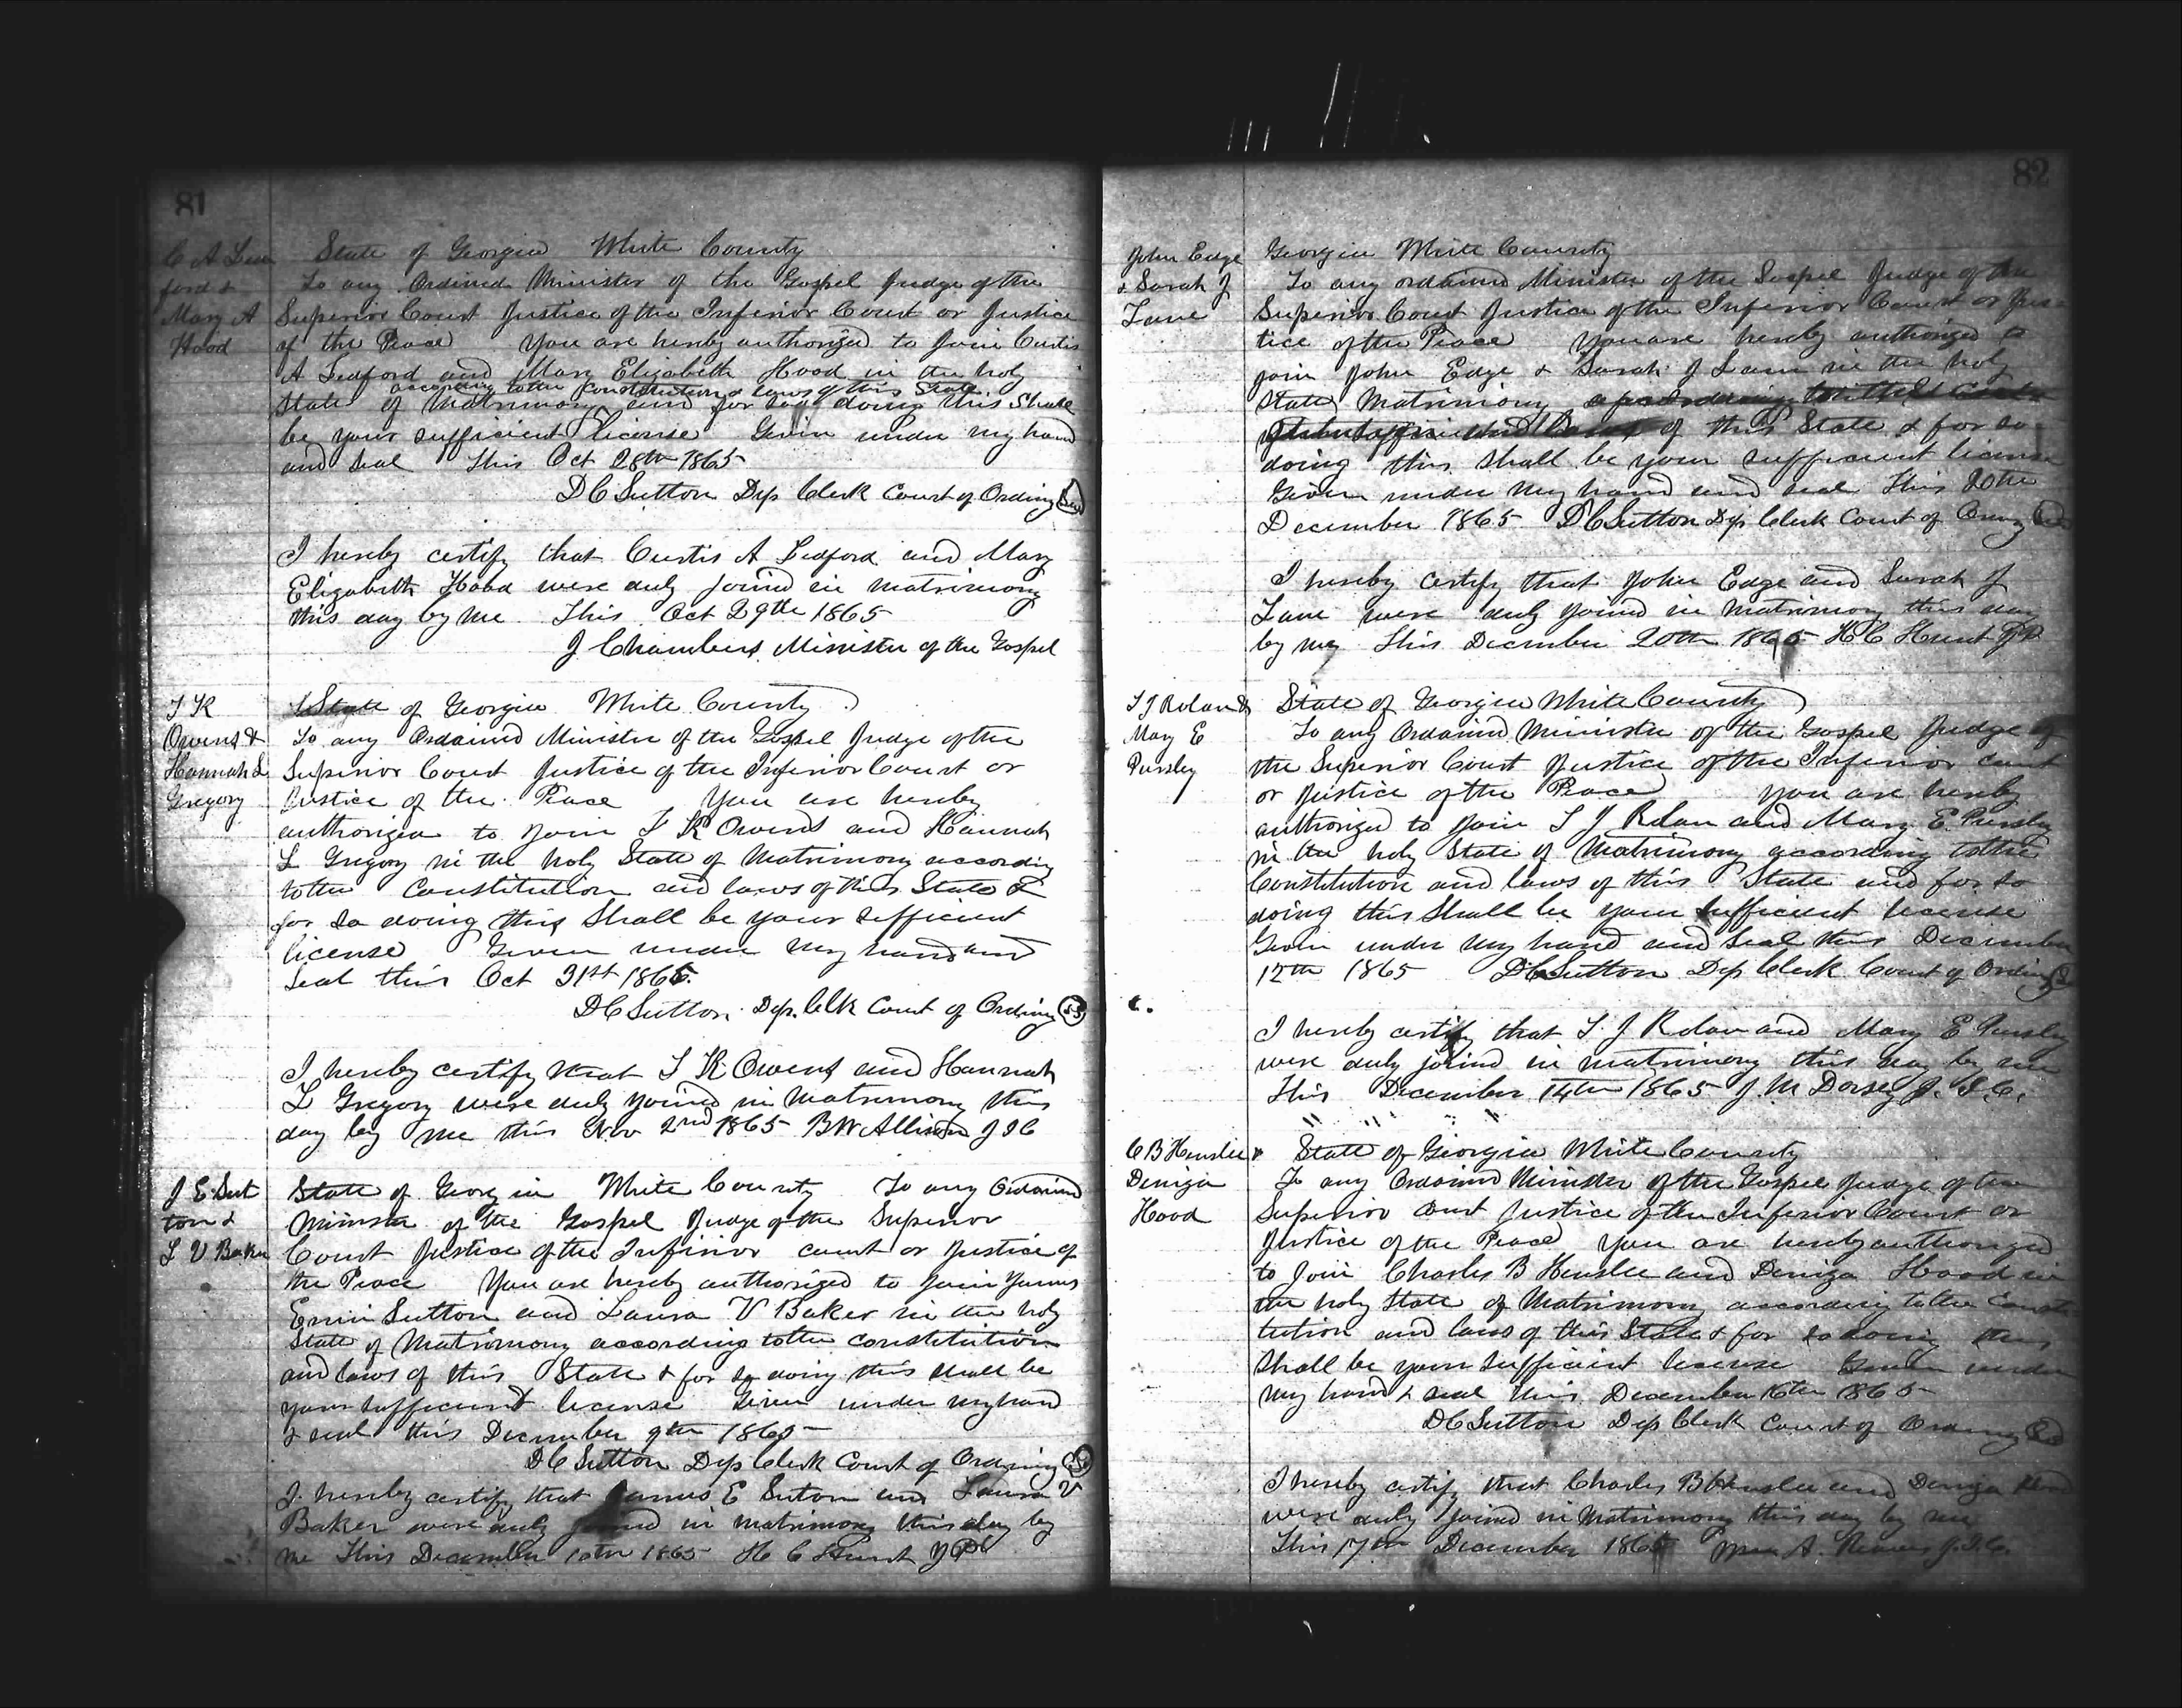 81
C A Led
ford &
Mary A
Hood
State of Georgia White County
To any Ordained Minister of the Gospel Judge of the
Superior Court Justice of the Inferior Court or Justice
of the Peace You are hereby authorized to Join Curtis
A Ledford and Mary Elizabeth Hood in the holy
according to the Constitution & laws of this State
State of Matrimony and for so doing this Shall
be your sufficient license Given under my hand
and seal This Oct 28th 1865
D C Sutton Dep Clerk Court of Ordiny
I hereby certify that Curtis A Ledford and Mary
Elizabeth Hood were duly joined in matrimony
this day by me This Oct 29th 1865
J Chambers Minister of the Gospel
T K
Owens &
Hannah L
Gregory
State of Georgia White County
To any Ordained Minister of the Gospel Judge of the
Superior Court Justice of the Inferior Court or
Justice of the Peace You are hereby
authorized to join T K Owens and Hannah
L Gregory in the holy State of Matrimony according
to the Constitution and laws of this State &
for so doing this Shall be your sufficient
license Given under my hand and
Seal this Oct 31st 1865.
D C Sutton Dep. Clk Court of Ordiny
I hereby certify that T K Owens and Hannah
L Gregory were duly joined in Matrimony this
day by me this Nov 2nd 1865 B W Allison J I C
J E Sut
ton &
L V Baker
State of Georgia White County To any Ordained
Minister of the Gospel Judge of the Superior
Court Justice of the Inferior court or Justice of
the Peace You are hereby authorized to join James
Ervin Sutton and Laura V Baker in the holy
State of Matrimony according to the constitution
and laws of this State & for so doing this shall be
your sufficient license Given under my hand
& seal this December 9th 1865
D C Sutton Dep Clerk Court of Ordiny
I hereby certify that James E Suton and Laura V
Baker were duly joined in matrimony this day by
me This December 10th 1865 H C Hunt J P
82
John Edge
& Sarah J
Lane
Georgia White County
To any ordained Minister of the Gospel Judge of the
Superior Court Justice of the Inferior Court or Jus
tice of the Peace You are hereby authorized to
join John Edge & Sarah J Lane in the holy
State Matrimony
of this State & for so
doing this shall be your sufficient license
Given under my hand and seal This 20th
December 1865 D C Sutton Dep Clerk Court of
I hereby certify that John Edge and Sarah J
Lane were duly joined in Matrimony this day
by me This December 20th 1865 H C Hunt J P
T J Rolan &
Mary E
Pursley
State of Georgia White County
To any Ordained Minister of the Gospel Judge of
the Superior Court Justice of the Inferior court
or Justice of the Peace You are hereby
authorized to join T J Rolan and Mary E Pursley
in the holy State of Matrimony according to the
Constitution and laws of this State and for so
doing this Shall be your sufficient license
Given under my hand and Seal this December
12th 1865 D C Sutton Dep Clerk Court of Ordiny
I hereby certify that T. J Rolan and Mary E Pursley
were duly joined in matrimony this day by me
This December 14th 1865 J. M Dorsey J. I. C.
C B Henslee &
Deniza
Hood
State of Georgia White County
To any Ordained Minister of the Gospel Judge of the
Superior Court Justice of the Inferior Court or
Justice of the Peace You are hereby authorized
to Join Charles B Henslee and Deniza Hood in
the holy State of Matrimony according to the Consti
tution and laws of this State & for so doing this
Shall be your sufficient license Given under
my hand & seal this December 16th 1865
D C Sutton Dep Clerk Court of Ordiny
I hereby certify that Charles B Henslee and Deniza Hood
were duly joined in Matrimony this day by me
This 17th December 1865 J. I. C.